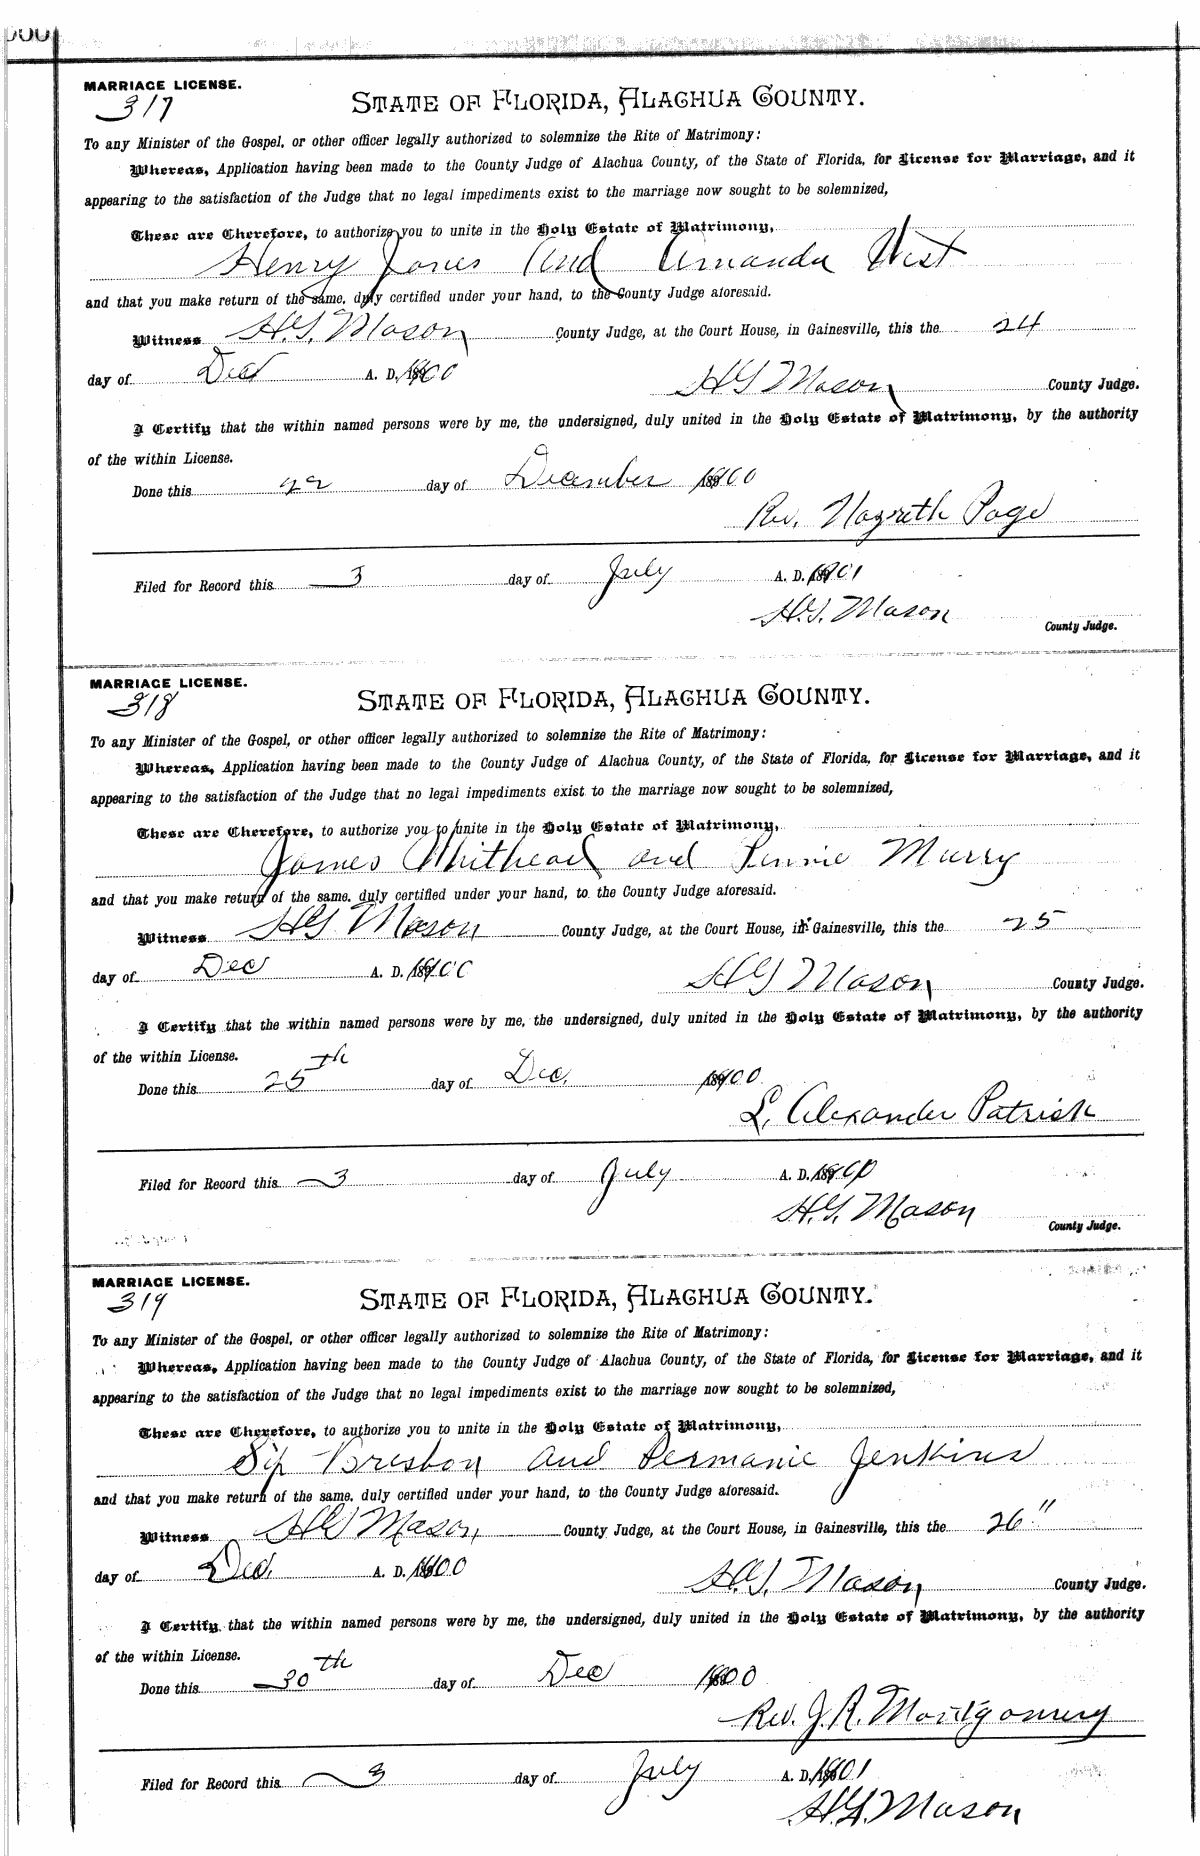 MARRIAGE LICENSE.
317
STATE OF FLORIDA, ALACHUA COUNTY.
To any Minister of the Gospel, or other officer legally authorized to solemnize the Rite of Matrimony:
Whereas, Application having been made to the County Judge of Alachua County, of the State of Florida, for License for Marriage, and it
appearing to the satisfaction of the Judge that no legal impediments exist to the marriage now sought to be solemnized,
These are Therefore, to authorize you to unite in the Holy Estate of Matrimony,
Henry Jones and Amanda West
and that you make return of the same, duly certified under your hand, to the County Judge aforesaid.
Witness H.G. Mason County Judge, at the Court House, in Gainesville, this the 24
day of Dec A. D. 1900 HG Mason County Judge.
I Certify that the within named persons were by me, the undersigned, duly united in the Holy Estate of Matrimony, by the authority
of the within License.
Done this 22 day of December 1900
Rev. Nazreth Page
Filed for Record this 3 day of July A. D. 1901
H.G. Mason
County Judge.
MARRIAGE LICENSE.
318
STATE OF FLORIDA, ALACHUA COUNTY.
To any Minister of the Gospel, or other officer legally authorized to solemnize the Rite of Matrimony:
Whereas, Application having been made to the County Judge of Alachua County, of the State of Florida, for License for Marriage, and it
appearing to the satisfaction of the Judge that no legal impediments exist to the marriage now sought to be solemnized,
These are Therefore, to authorize you to unite in the Holy Estate of Matrimony,
James Whithead and Pennie Murry
and that you make return of the same, duly certified under your hand, to the County Judge aforesaid.
Witness HG Mason County Judge, at the Court House, in Gainesville, this the 25
day of Dec A. D. 1900 HG Mason County Judge.
I Certify that the within named persons were by me, the undersigned, duly united in the Holy Estate of Matrimony, by the authority
of the within License.
Done this 25th day of Dec. 1900
L. Alexander Patrick
Filed for Record this 3 day of July A. D. 1900
H.G. Mason
County Judge.
MARRIAGE LICENSE.
319
STATE OF FLORIDA, ALACHUA COUNTY.
To any Minister of the Gospel, or other officer legally authorized to solemnize the Rite of Matrimony:
Whereas, Application having been made to the County Judge of Alachua County, of the State of Florida, for License for Marriage, and it
appearing to the satisfaction of the Judge that no legal impediments exist to the marriage now sought to be solemnized,
These are Therefore, to authorize you to unite in the Holy Estate of Matrimony,
Sip Brisbon and Permanie Jenkins
and that you make return of the same, duly certified under your hand, to the County Judge aforesaid.
Witness HG Mason County Judge, at the Court House, in Gainesville, this the 26"
day of Dec. A. D. 1900 H.G. Mason County Judge.
I Certify that the within named persons were by me, the undersigned, duly united in the Holy Estate of Matrimony, by the authority
of the within License.
Done this 30th day of Dec 1900
Rev. J. R. Montgomery
Filed for Record this 3 day of July A. D. 1901
H.G. Mason